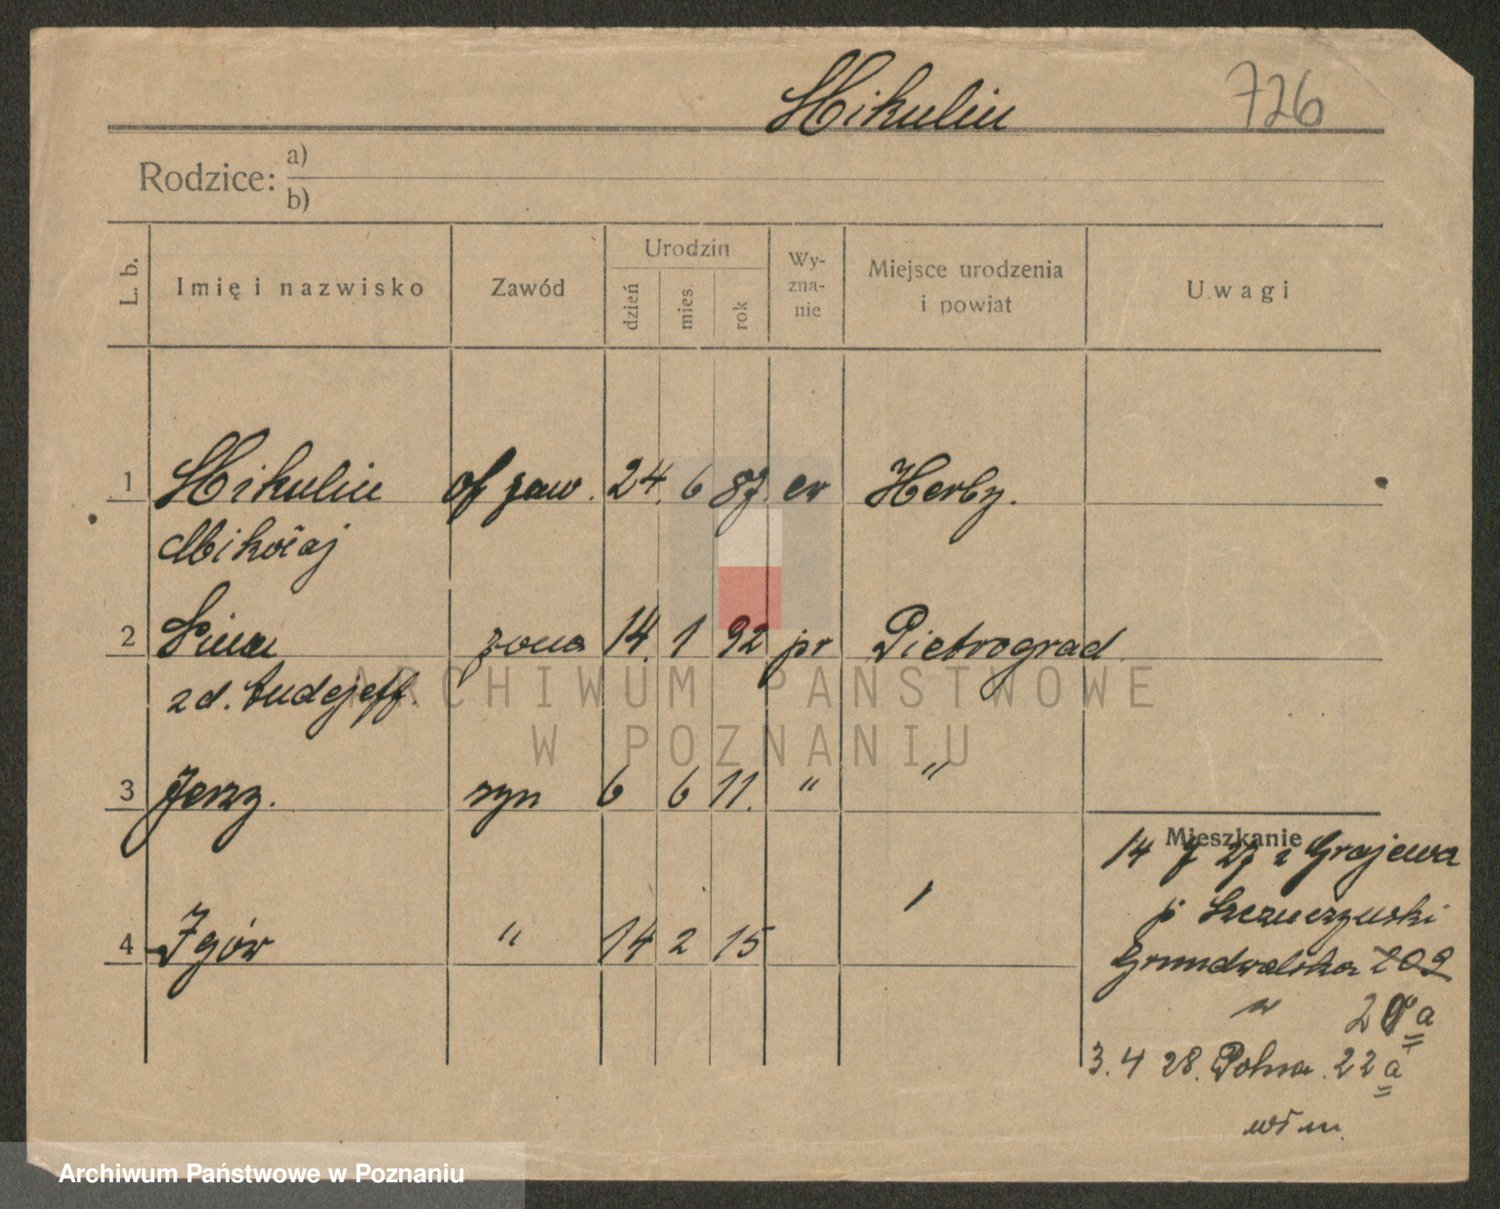 Mikulin 726
Rodzice: a)
b)
L. b. Imię i nazwisko Zawód Urodzin dzień mies. rok Wy-zna-nie Miejsce urodzenia i powiat Uwagi
1 Mikulin of zaw. 24. 6 87. er Herby.
Mikołaj
2 żona 14. 1 92 pr Pietrograd
zd.
3 Jerzy. syn 6 6 11. " "
Mieszkanie
14 7 27 z Grajewa
p. Szczuczyński
4 Igór " 14 2 15
Grundwalska 209
a
3. 4 28. Polna 22a
wł m.
ARCHIWUM PAŃSTWOWE
W POZNANIU
Archiwum Państwowe w Poznaniu